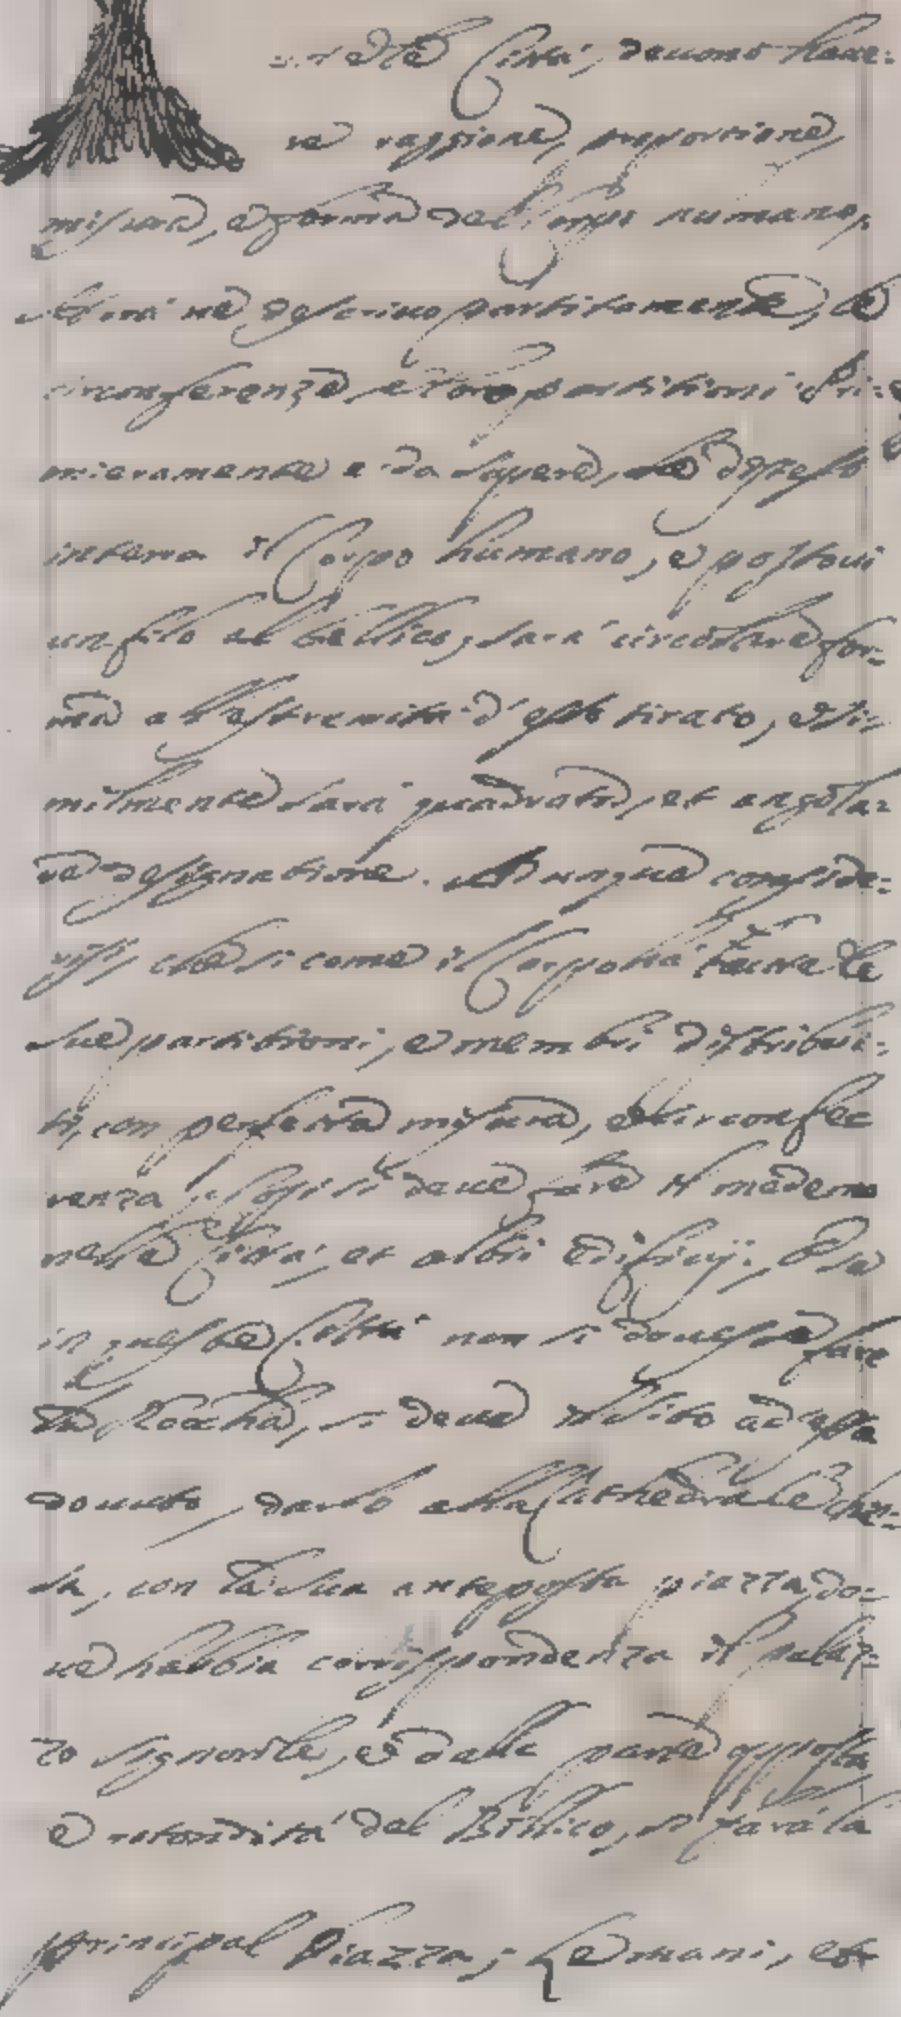 Città, deuono haue-
re raggione, proportione,
misura, e forma del Corpo humano,
Hora ne descriuo partitamente, le
circonferenze, e loro partitioni. Pri-
mieramente e da sapere, che disteso
in terra il Corpo humano, e postoui
un filo al bellico, sara' circolare for-
ma all'estremita d'esso tirato, e si-
milmente sara' quadrata, et angola-
re designatione. Dunque conside-
risi, che si come il Corpo ha' tutte le
sue partitioni, e membri distribui-
ti, con perfetta misura, e circonfe
renza, cosi si deue fare il medemo
nelle Citta', et altri edificij. E se
in queste Citta' non si douesse fare
la Roccha, si deue il sito ad essa
douuto, darlo alla Cathedrale chie-
sa, con la sua anteposta piazza, do-
ue habbia corrispondenza il palaz-
zo signorile, e dalla parte opposta
e rotondita' del Bellico, si fara' la
principal Piazza; Le mani, et